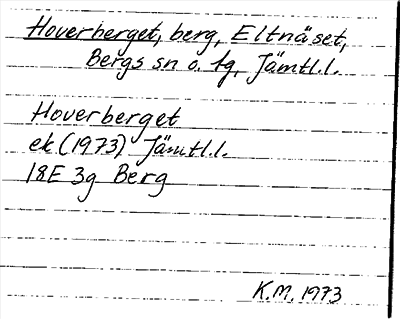 Hoverberget, berg, Eltnäset,
Bergs sn o. tg, Jämtl.l.
Hoverberget
ek (1973) Jämtl.l.
18E 3g Berg
K.M. 1973